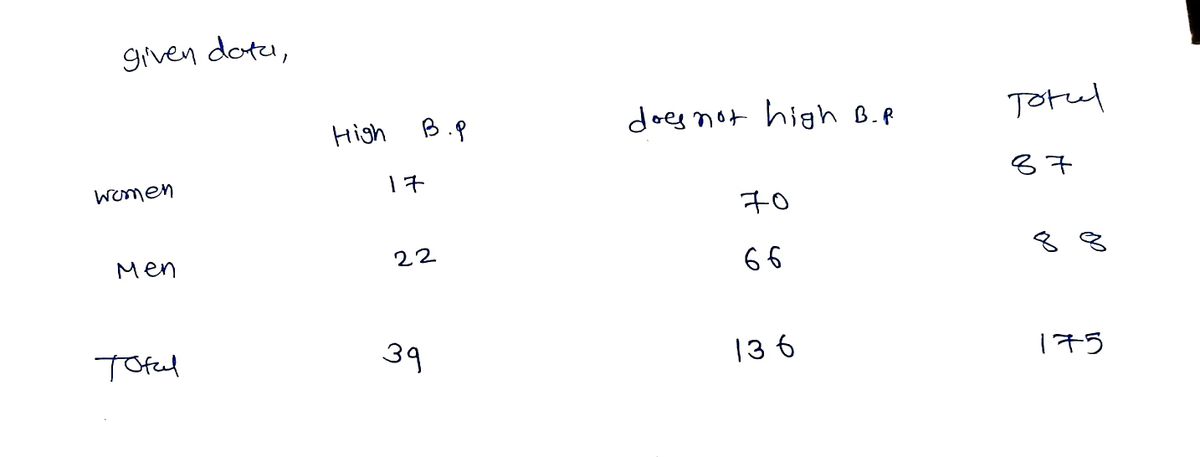 given data,
High B.P does not high B.P Total
women 17 70 87
Men 22 66 88
Total 39 136 175